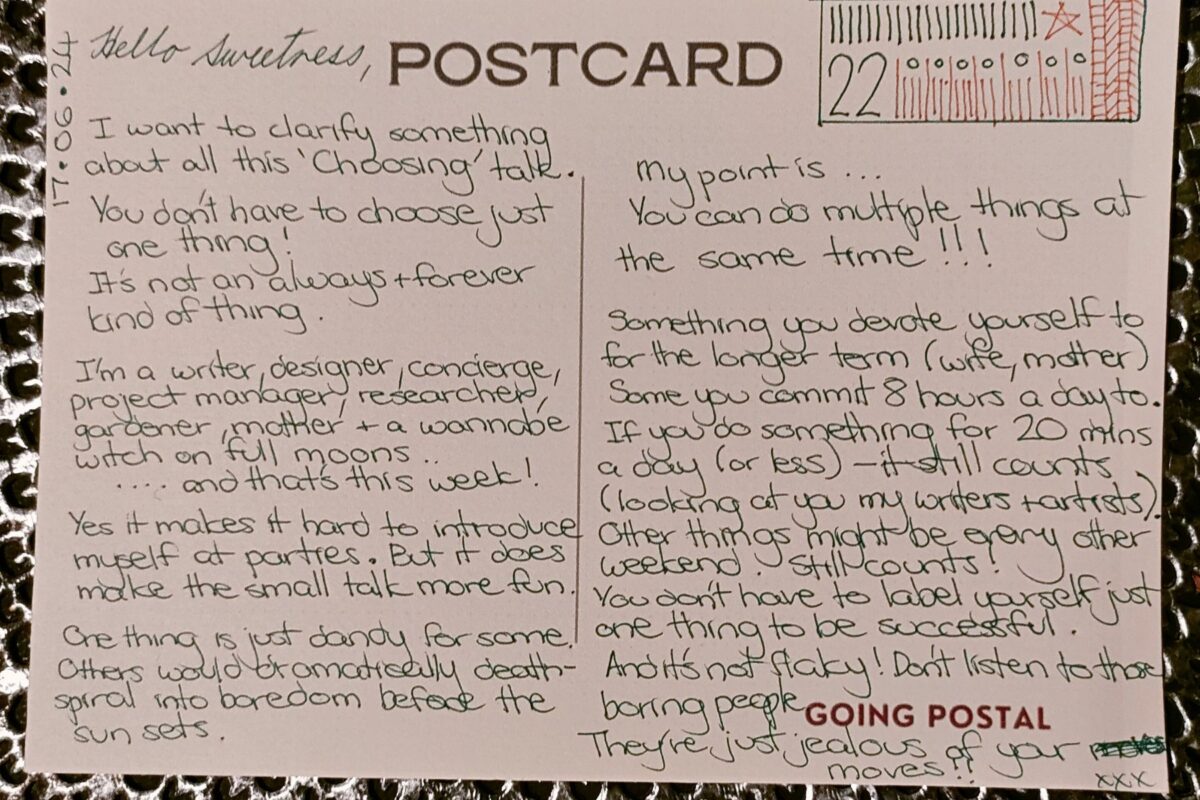 17.06.24
Hello Sweetness,
POSTCARD
22
I want to clarify something
about all this 'Choosing' talk.
You don't have to choose just
one thing!
It's not an always + forever
kind of thing.
I'm a writer, designer, concierge,
project manager, researcher,
gardener, mother + a wannabe
witch on full moons..
.... and that's this week!
Yes it makes it hard to introduce
myself at parties. But it does
make the small talk more fun.
One thing is just dandy for some.
Others would dramatically death-
spiral into boredom before the
sun sets.
My point is ...
You can do multiple things at
the same time!!!
Something you devote yourself to
for the longer term (wife, mother)
Some you commit 8 hours a day to.
If you do something for 20 mins
a day (or less) – it still counts
(looking at you my writers + artists).
Other things might be every other
weekend. Still counts!
You don't have to label yourself just
one thing to be successful.
And it's not flaky! Don't listen to those
boring people
GOING POSTAL
They're just jealous of your
moves!!
xxx